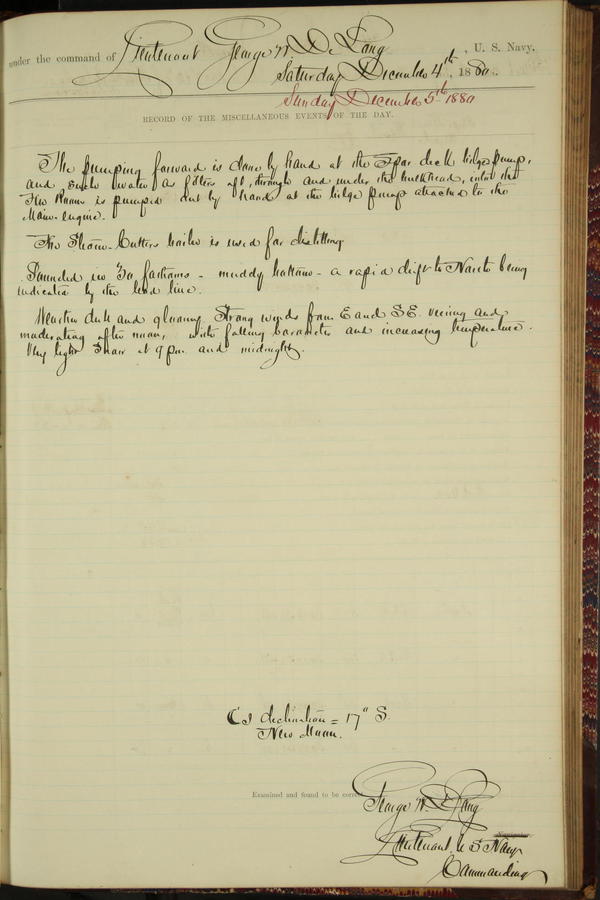 under the command of Lieutenant George W. De Long, U. S. Navy.
Saturday December 4th, 1880.
Sunday December 5th 1880
RECORD OF THE MISCELLANEOUS EVENTS OF THE DAY.
The pumping forward is done by hand at the Spar deck bilge pump,
and such water as filters aft, through and under the bulkhead, into the
Fire Room is pumped out by hand at the bilge pump attached to the
Main engine.
The Steam-Cutters boiler is used for distilling
Sounded in 30 fathoms - muddy bottom - a rapid drift to N being
indicated by the lead line.
Weather dull and gloomy. Strong winds from E and SE. veering and
moderating after noon, with falling barometer and increasing temperature.
Very light Snow at 9 pm. and midnight.
declination = 17" S.
New Moon.
Examined and found to be correct.
George W. De Long
Navigator.
Lieutenant U S Navy
Commanding